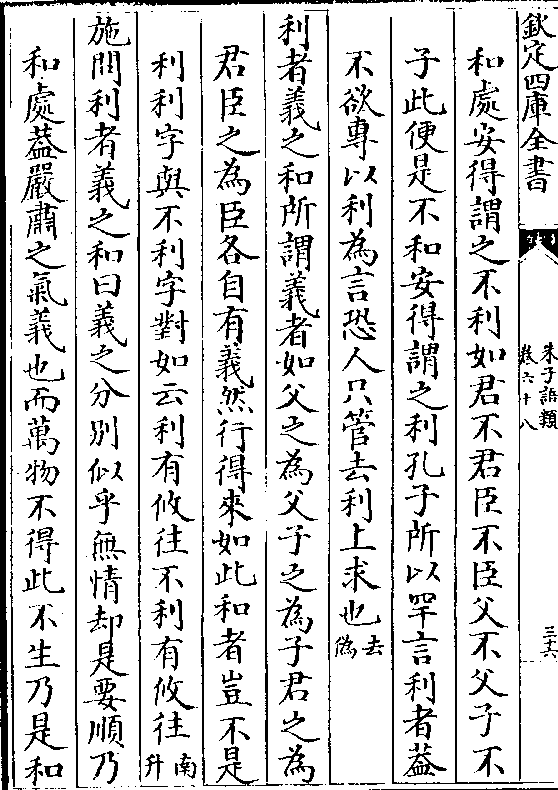 欽定四庫全書
朱子語類
卷六十八
三十六
和處安得謂之不利如君不君臣不臣父不父子不
子此便是不和安得謂之利孔子所以罕言利者蓋
不欲專以利為言恐人只管去利上求也去偽
利者義之和所謂義者如父之為父子之為子君之為
君臣之為臣各自有義然行得來如此和者豈不是
利利字與不利字對如云利有攸往不利有攸往南升
施問利者義之和曰義之分別似乎無情却是要順乃
和處蓋嚴肅之氣義也而萬物不得此不生乃是和